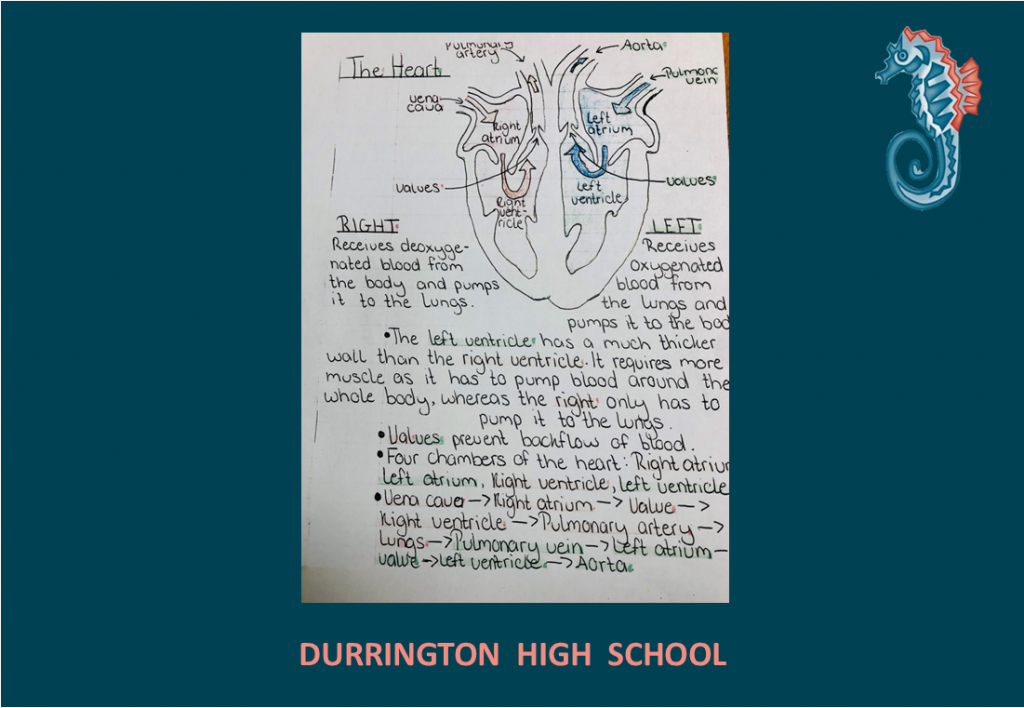 The Heart
Pulmonary
artery
Aorta
Pulmona
vein
vena
cava
Right
atrium
Left
atrium
valves
valves
Right
vent-
ricle
Left
ventricle
RIGHT
Receives deoxyge-
nated blood from
the body and pumps
it to the lungs.
LEFT
Receives
oxygenated
blood from
the lungs and
pumps it to the bod
•The left ventricle has a much thicker
wall than the right ventricle. It requires more
muscle as it has to pump blood around the
whole body, whereas the right only has to
pump it to the lungs.
•Valves prevent backflow of blood.
•Four chambers of the heart: Right atrium
Left atrium, Right ventricle, left ventricle
•Vena cava → Right atrium → Valve →
Right ventricle → Pulmonary artery →
Lungs → Pulmonary vein → Left atrium –
valve → left ventricle → Aorta
DURRINGTON HIGH SCHOOL